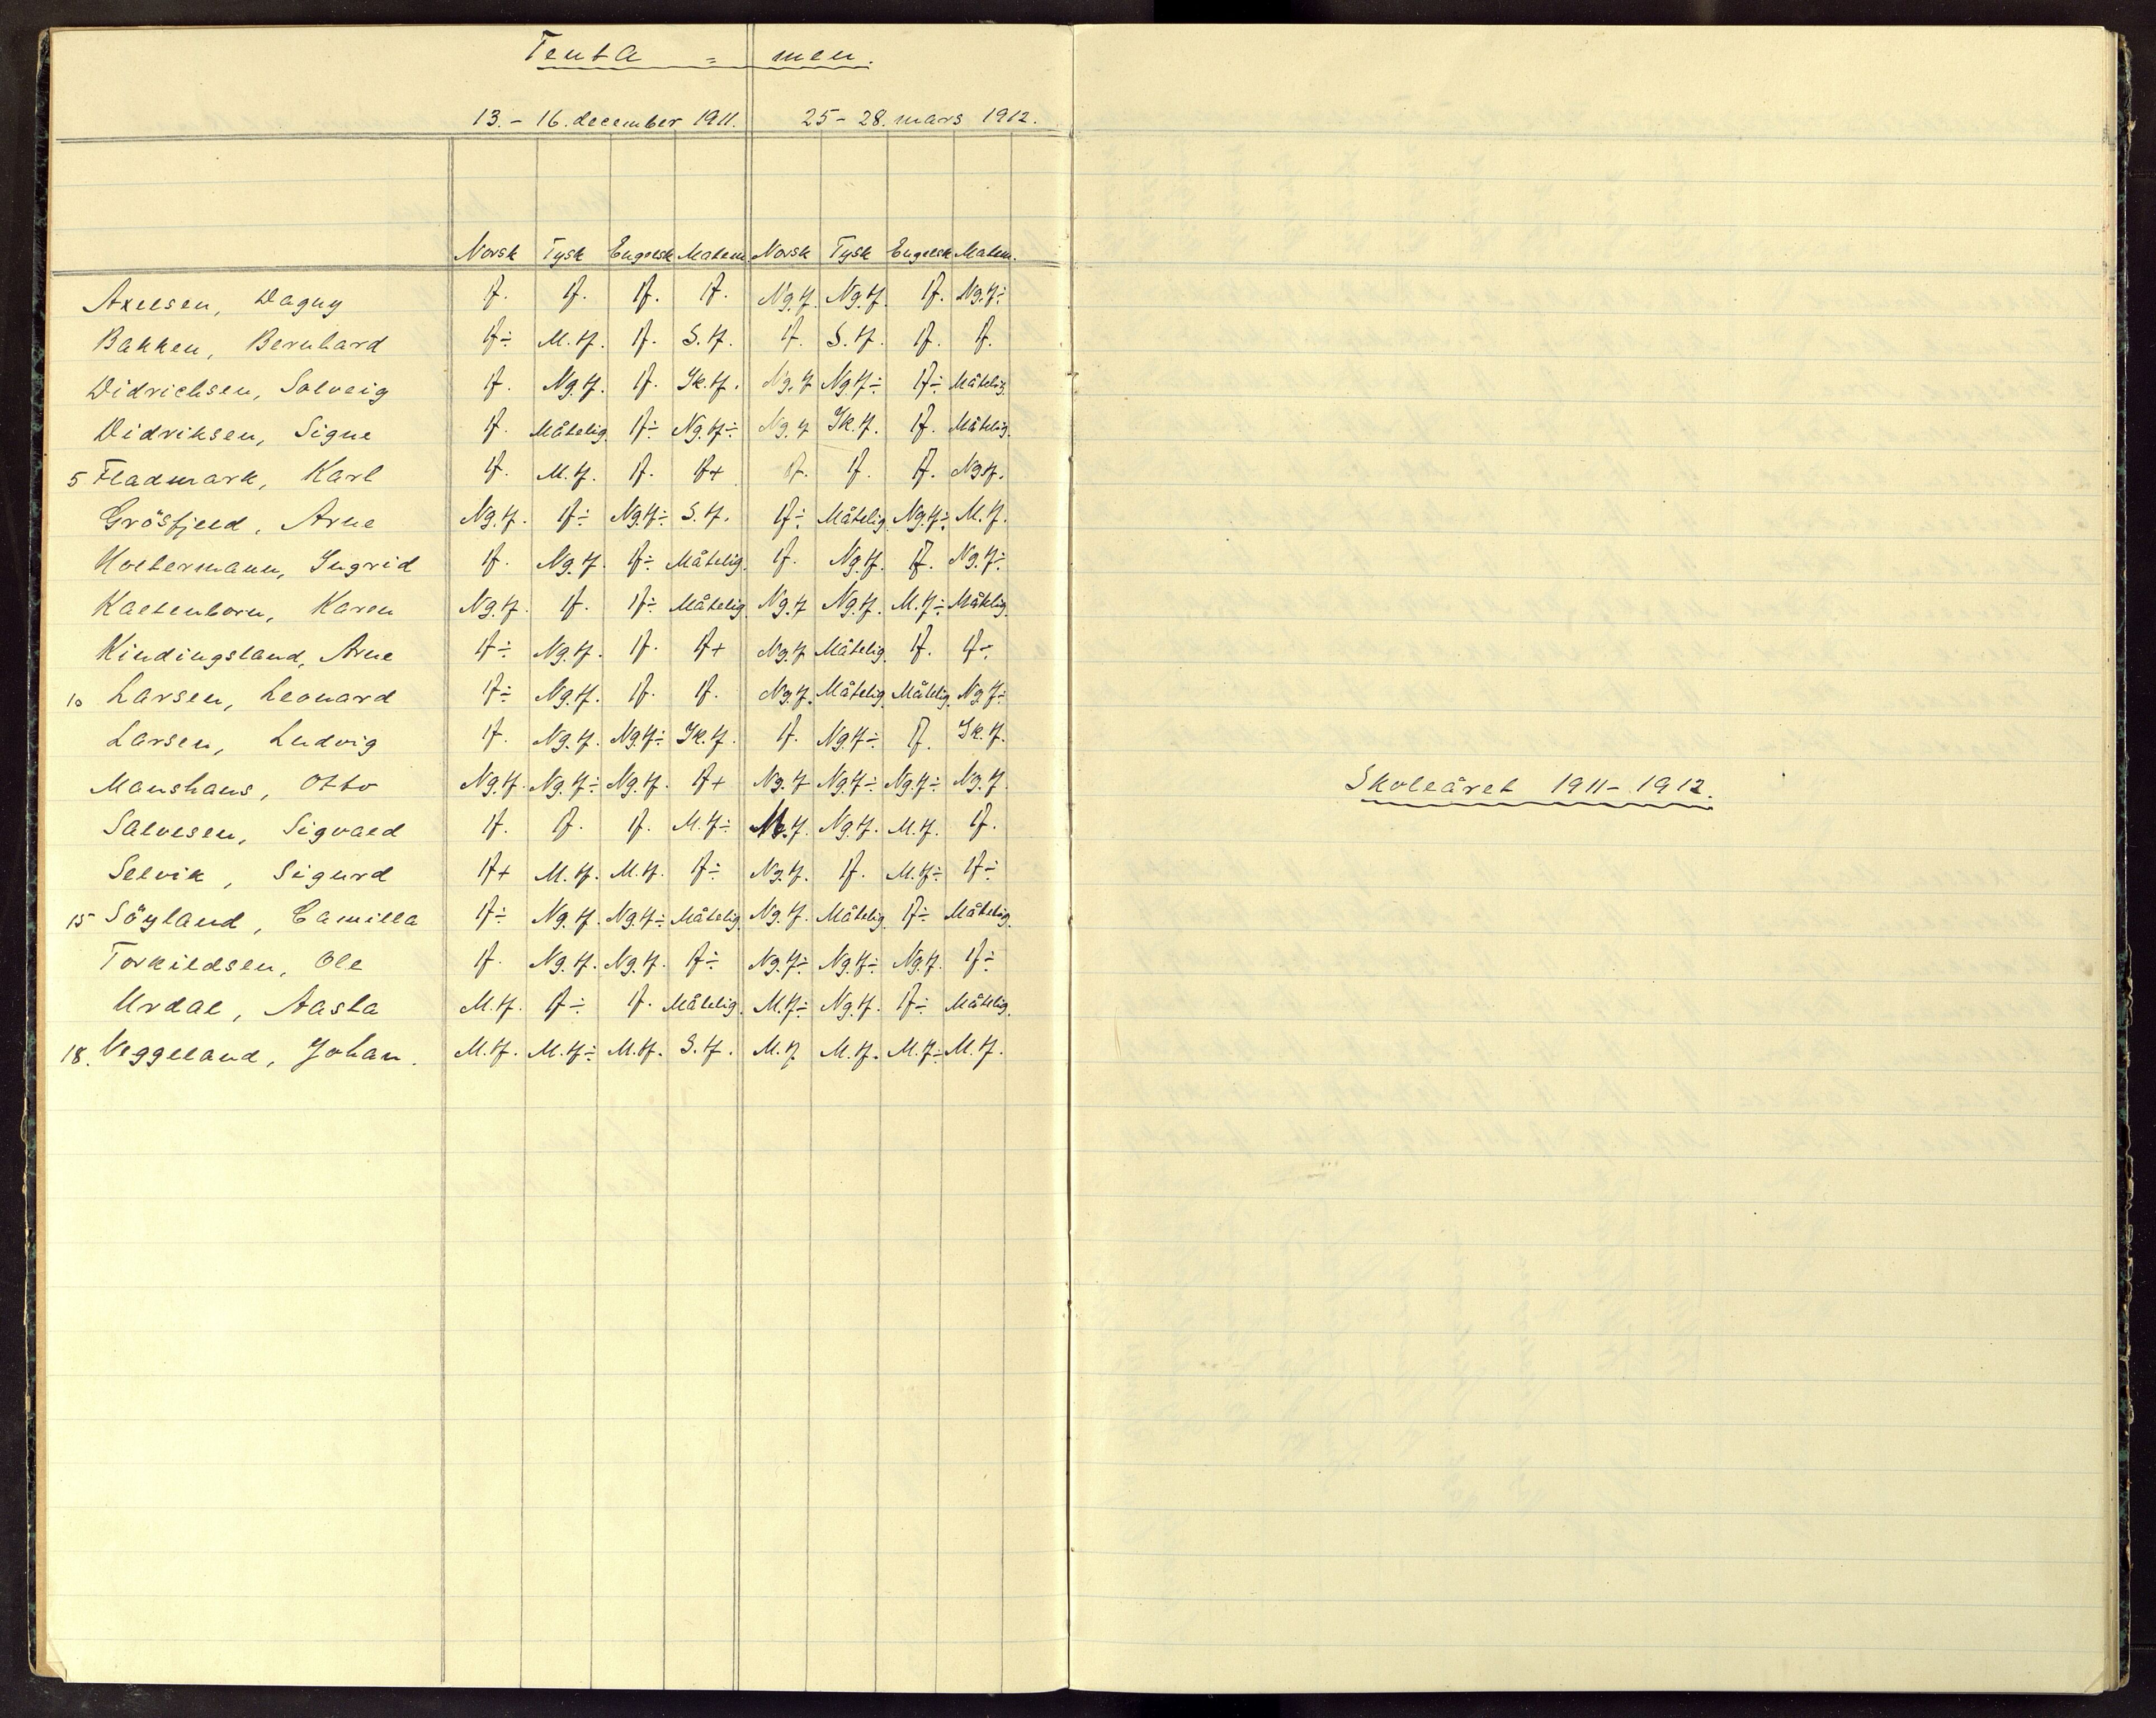 Tenta = men.
13. - 16. december 1911. 25 - 28. mars 1912.
Norsk Tysk Engelsk Matem. Norsk Tysk Engelsk Matem.
Axelsen, Dagny tf. tf. tf. tf. Ng.tf. Ng.tf. tf. Ng.tf÷
Bakken, Bernhard tf÷ M.tf. tf. S.tf. tf. S.tf. tf. tf.
Didrichsen, Solveig tf. Ng.tf. tf. Ik.tf. Ng.tf Ng.tf÷ tf÷ Måtelig.
Didriksen, Signe tf. Måtelig tf÷ Ng.tf÷ Ng.tf Ik.tf. tf. Måtelig.
5 Fladmark, Karl tf. M.tf. tf. tf+ tf. tf. tf. Ng.tf.
Grösfjeld, Arne Ng.tf. tf÷ Ng.tf÷ S.tf. tf÷ Måtelig Ng.tf÷ M.tf.
Holtermann, Ingrid tf. Ng.tf. tf÷ Måtelig. tf. Ng.tf. tf. Ng.tf÷
Kaltenborn, Karen Ng.tf. tf. tf÷ Måtelig Ng.tf Ng.tf. M.tf÷ Måtelig.
Kindingsland, Arne tf÷ Ng.tf. tf. tf+ Ng.tf Måtelig. tf. tf÷
10 Larsen, Leonard tf÷ Ng.tf. tf. tf. Ng.tf. Måtelig Måtelig. Ng.tf÷
Larsen, Ludvig tf. Ng.tf. Ng.tf÷ Ik.tf. tf. Ng.tf÷ tf. Ik.tf.
Manshaus, Otto Ng.tf. Ng.tf÷ Ng.tf. tf+ Ng.tf Ng.tf÷ Ng.tf÷ Ng.tf
Salvesen, Sigvald tf. tf. tf. M.tf÷ M.tf. Ng.tf. M.tf. tf.
Selvik, Sigurd tf+ M.tf. M.tf. tf÷ Ng.tf. tf. M.tf÷ tf÷
15 Söyland, Camilla tf÷ Ng.tf. Ng.tf÷ Måtelig. Ng.tf. Måtelig tf÷ Måtelig.
Torkildsen, Ole tf. Ng.tf. Ng.tf. tf÷ Ng.tf÷ Ng.tf÷ Ng.tf. tf÷
Urdal, Aasta M.tf. tf÷ tf. Måtelig. M.tf÷ Ng.tf. tf÷ Måtelig.
18. Veggeland, Johan. M.tf. M.tf÷ M.tf. S.tf. M.tf M.tf. M.tf÷ M.tf.
Skoleåret 1911-1912.